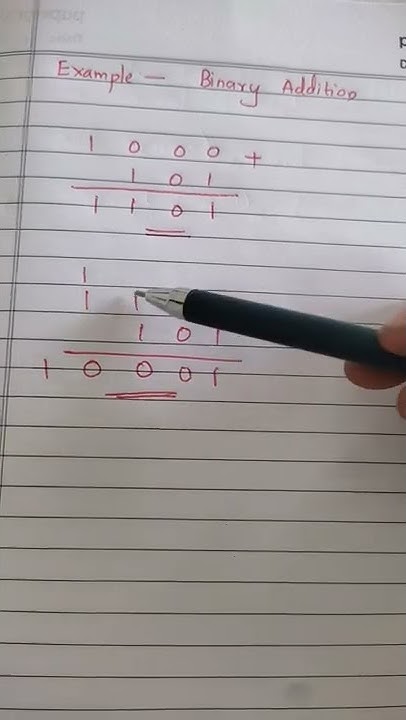 Example — Binary Addition
1 0 0 0 +
1 0 1
1 1 0 1
1
1 1
1 0 1
1 0 0 0 1